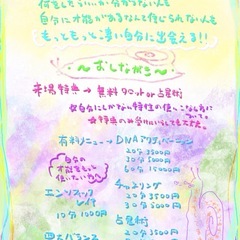 何をしていいか分からない人も
自分に才能があるなんて信じられない人も
もっともっと凄い自分に出会える!!
〜おしながき〜
来場特典→無料タロットor占星術
☆自分にしかない特性の使いこなし方
について。
★特典のみ
有料メニュー→DNAアクティベーション
20分3500円
30分5000円
60分15000円
自分の
才能をもっと
使いたい方へ
エンソフィック
レイキ
10分1000円
チャネリング
20分3000円
30分5000円
占星術
20分3500円